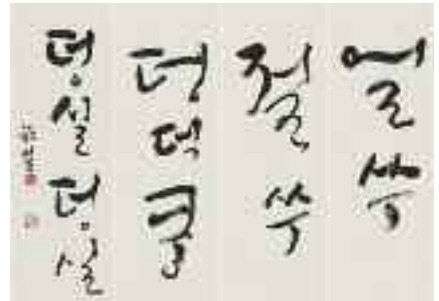 얼쑤
절쑤
덩덕쿵
덩실덩실